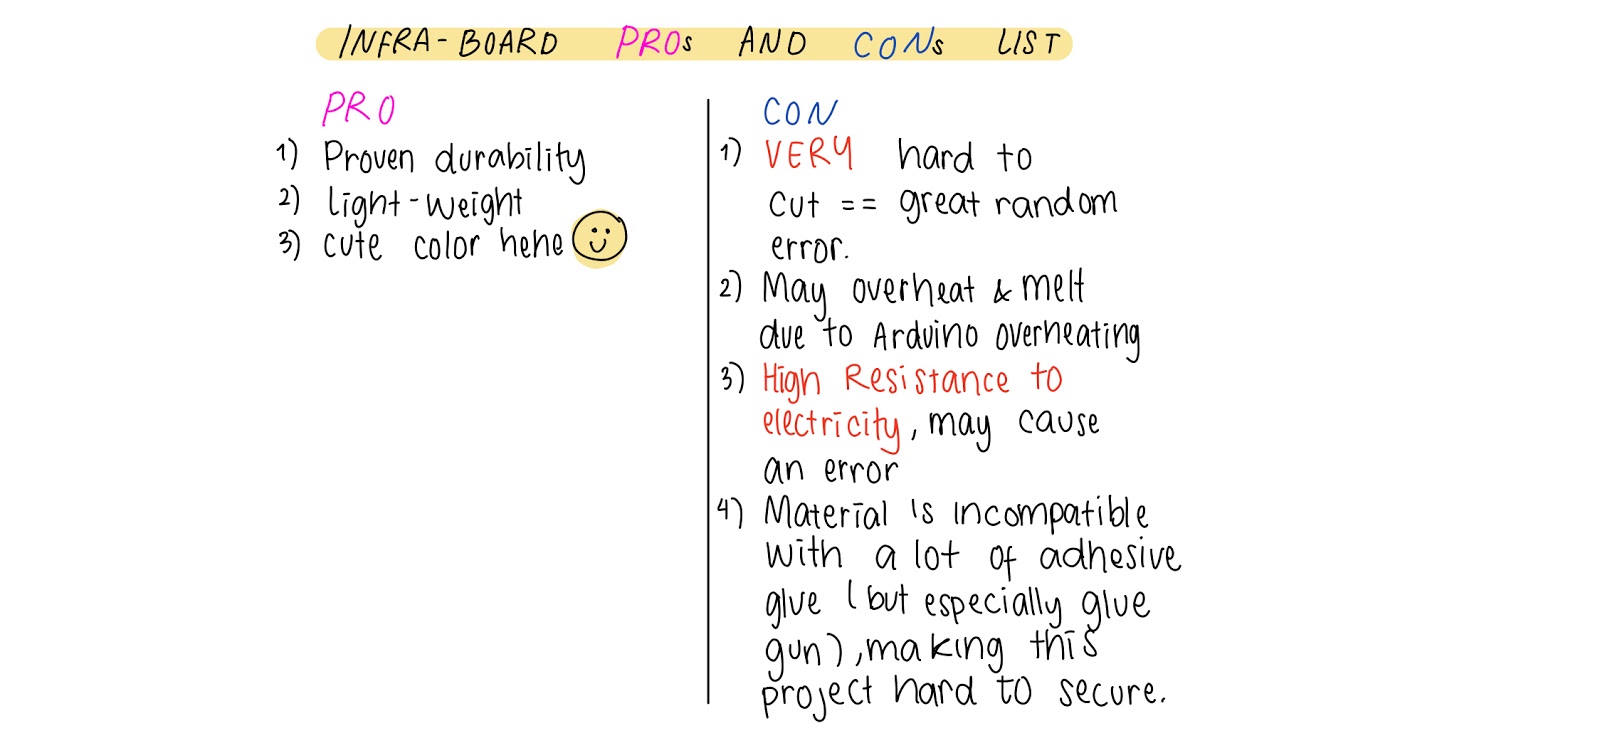 INFRA-BOARD PROs AND CONs LIST
PRO
1) Proven durability
2) light-weight
3) cute color hehe
CON
1) VERY hard to
cut == great random
error.
2) May overheat & melt
due to Arduino overheating
3) High Resistance to
electricity, may cause
an error
4) Material is incompatible
with a lot of adhesive
glue (but especially glue
gun), making this
project hard to secure.